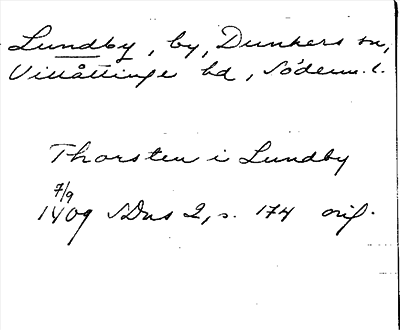 Lundby, by, Dunkers sn,
Villåttinge hd, Söderm. l.
Thorsten i Lundby
7/9
1409 SDns 2, s. 174 orig.